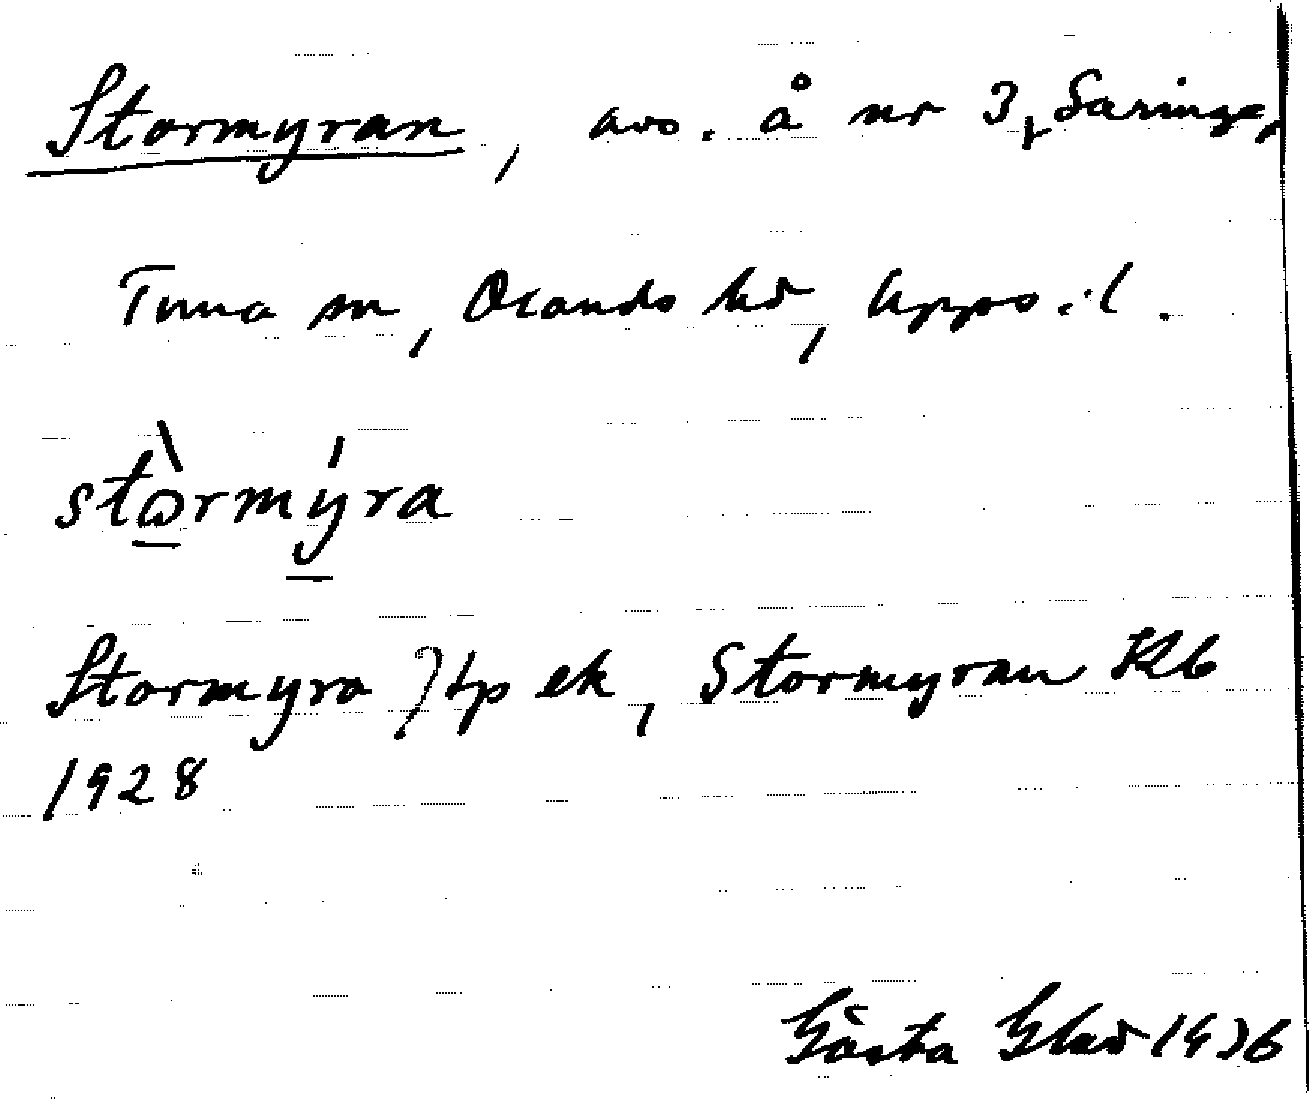 Stormyran, avs. å nr 3, Saringe,
Tuna sn, Olands hd, Upps. l.
stòrmýra
Stormyra Htp ek, Stormyran Kb
1928
Gösta Glad 1936